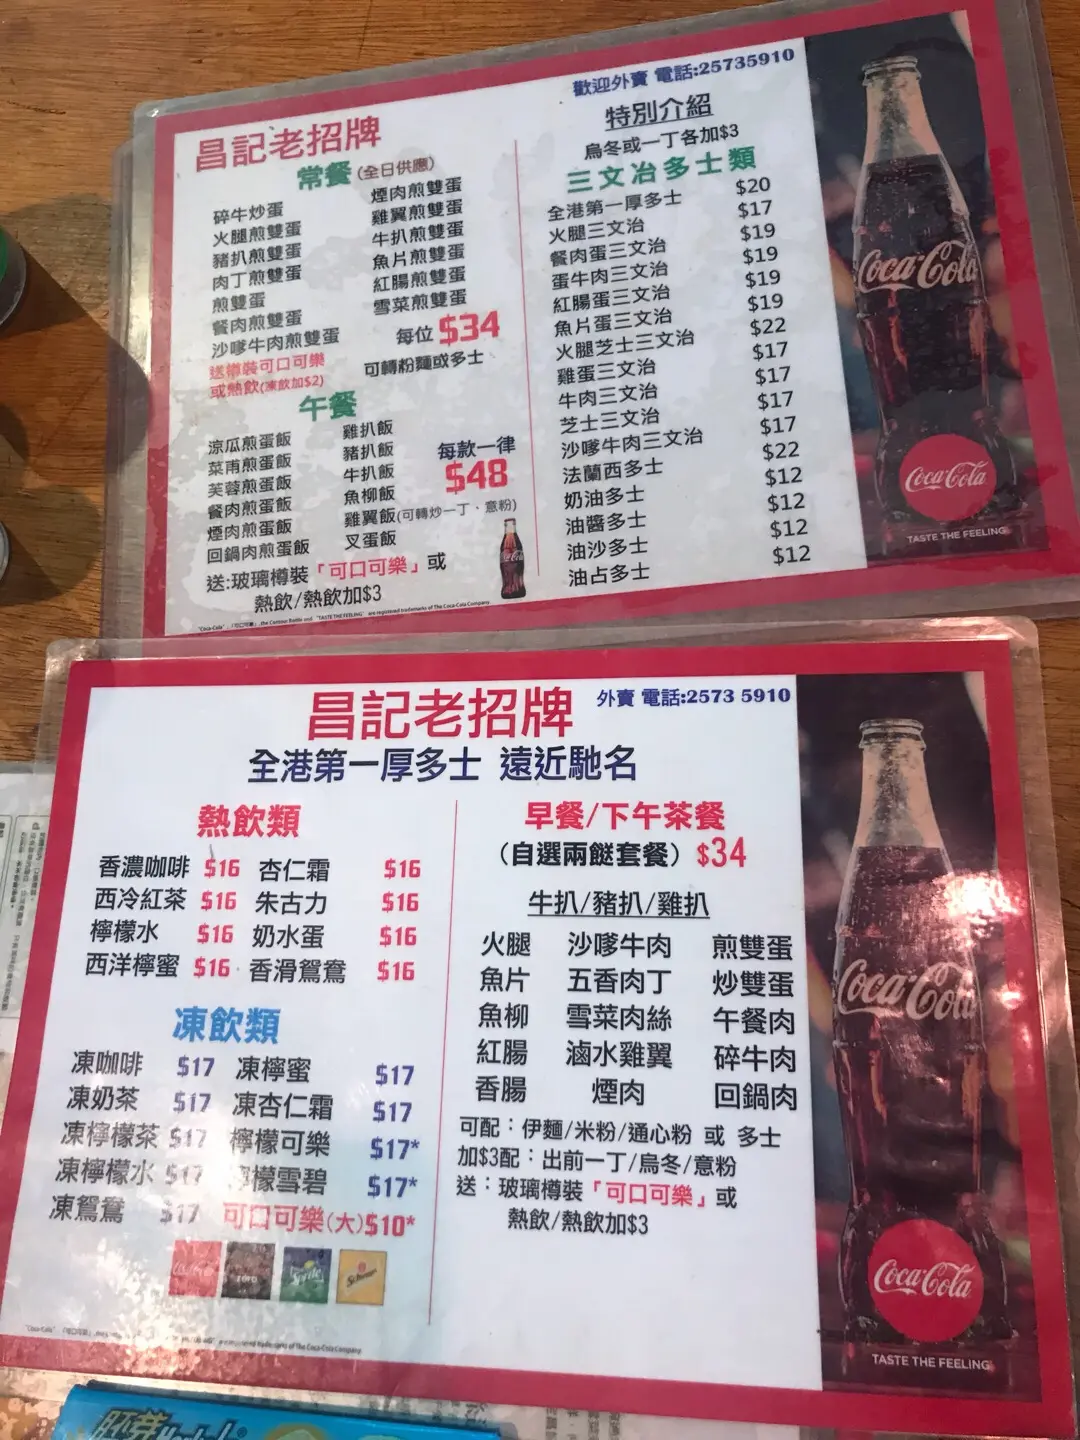 歡迎外賣 電話:25735910
昌記老招牌
常餐(全日供應)
碎牛炒蛋
火腿煎雙蛋
豬扒煎雙蛋
肉丁煎雙蛋
煎雙蛋
餐肉煎雙蛋
沙嗲牛肉煎雙蛋
煙肉煎雙蛋
雞翼煎雙蛋
牛扒煎雙蛋
魚片煎雙蛋
紅腸煎雙蛋
雪菜煎雙蛋
每位 $34
送樽裝可口可樂
或熱飲(凍飲加$2)
可轉粉麵或多士
午餐
涼瓜煎蛋飯
菜甫煎蛋飯
芙蓉煎蛋飯
餐肉煎蛋飯
煙肉煎蛋飯
回鍋肉煎蛋飯
雞扒飯
豬扒飯
牛扒飯
魚柳飯
雞翼飯(可轉炒一丁、意粉)
叉蛋飯
每款一律
$48
送:玻璃樽裝「可口可樂」或
熱飲/熱飲加$3
特別介紹
烏冬或一丁各加$3
三文冶多士類
全港第一厚多士 $20
火腿三文治 $17
餐肉蛋三文治 $19
蛋牛肉三文治 $19
紅腸蛋三文治 $19
魚片蛋三文治 $19
火腿芝士三文治 $22
雞蛋三文治 $17
牛肉三文治 $17
芝士三文治 $17
沙嗲牛肉三文治 $17
法蘭西多士 $22
奶油多士 $12
油醬多士 $12
油沙多士 $12
油占多士 $12
Coca-Cola
Coca-Cola
TASTE THE FEELING
昌記老招牌
外賣 電話:2573 5910
全港第一厚多士 遠近馳名
熱飲類
香濃咖啡 $16 杏仁霜 $16
西冷紅茶 $16 朱古力 $16
檸檬水 $16 奶水蛋 $16
西洋檸蜜 $16 香滑鴛鴦 $16
凍飲類
凍咖啡 $17 凍檸蜜 $17
凍奶茶 $17 凍杏仁霜 $17
凍檸檬茶 $17 檸檬可樂 $17*
凍檸檬水 $17 檸檬雪碧 $17*
凍鴛鴦 $17 可口可樂(大)$10*
Sprite
早餐/下午茶餐
(自選兩餸套餐) $34
牛扒/豬扒/雞扒
火腿 沙嗲牛肉 煎雙蛋
魚片 五香肉丁 炒雙蛋
魚柳 雪菜肉絲 午餐肉
紅腸 滷水雞翼 碎牛肉
香腸 煙肉 回鍋肉
可配：伊麵/米粉/通心粉 或 多士
加$3配：出前一丁/烏冬/意粉
送：玻璃樽裝「可口可樂」或
熱飲/熱飲加$3
Coca-Cola
Coca-Cola
TASTE THE FEELING